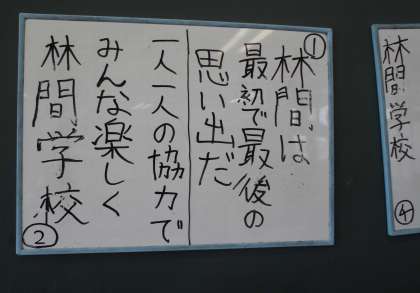 ①
林間は
最初で最後の
思い出だ
一人一人の協力で
みんな楽しく
林間学校
②
林間学校
④